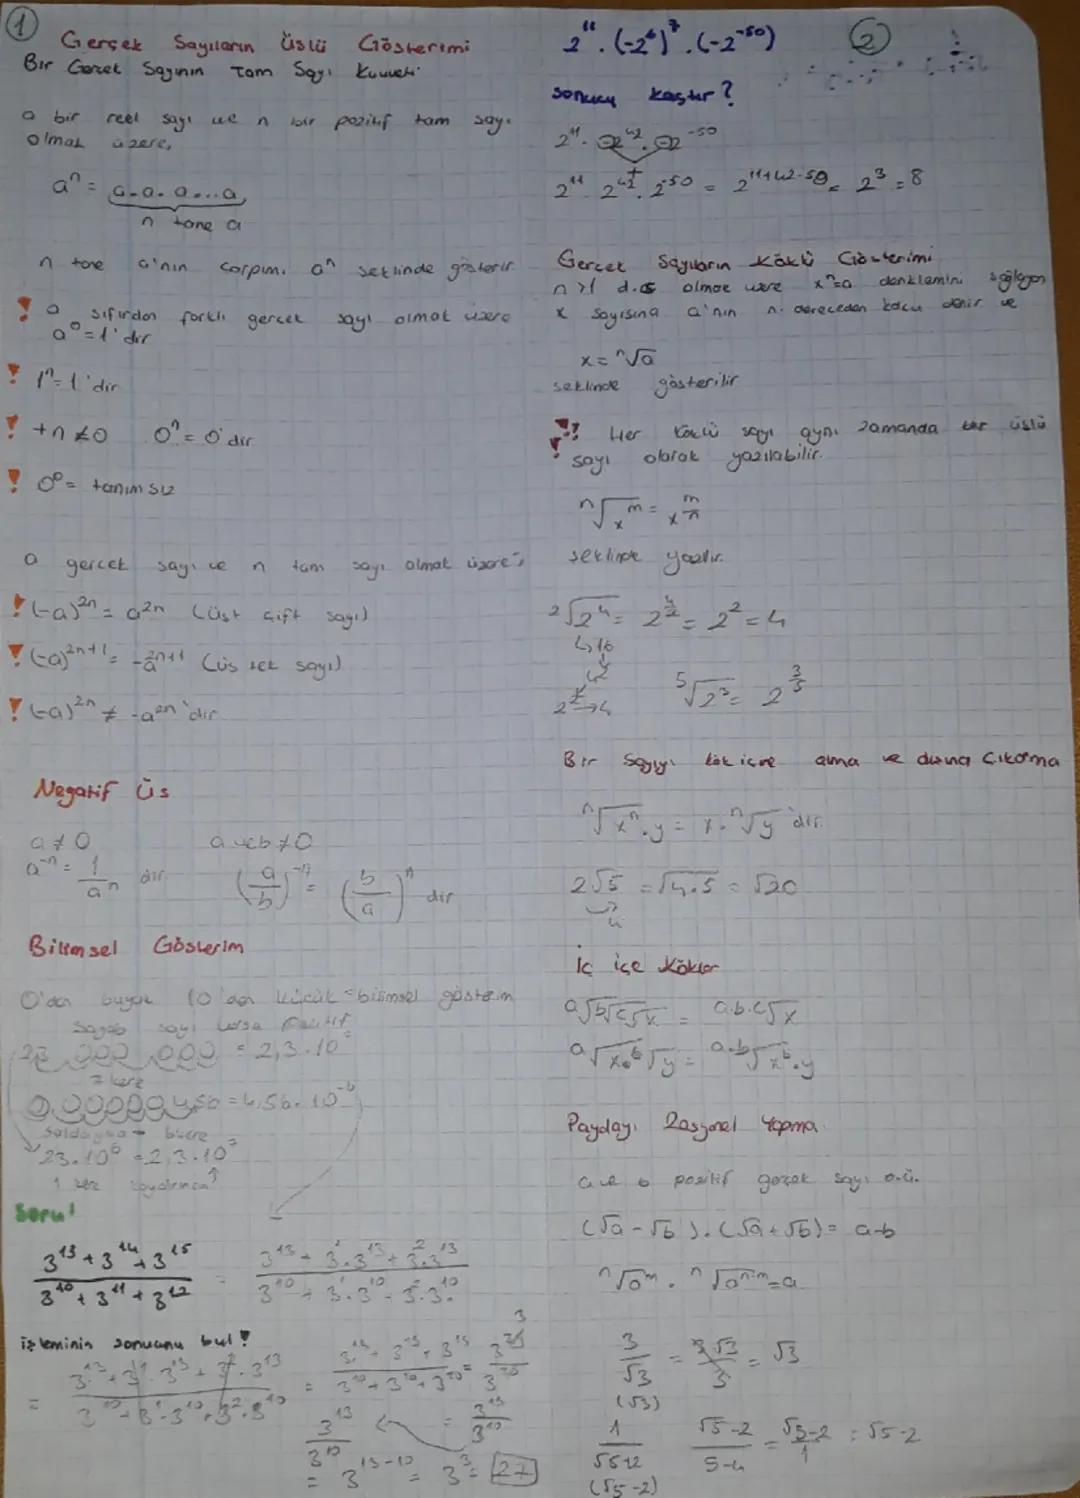 1
Gerçek Sayıların Üslü Gösterimi
Bir Gerçek Sayının Tam Sayı Kuvveti
a bir reel sayı ve n bir pozitif tam sayı
olmak üzere,
aⁿ = a.a.a...a
n tane a
n tane a'nın çarpımı aⁿ şeklinde gösterilir
! a sıfırdan farklı gerçek sayı olmak üzere
a⁰=1'dir
! 1ⁿ=1'dir
! +n≠0 0ⁿ=0'dır
! 0⁰= tanımsız
a gerçek sayı ve n tam sayı olmak üzere;
! (-a)²ⁿ = a²ⁿ (üst çift sayı)
! (-a)²ⁿ⁺¹ = -a²ⁿ⁺¹ (üs tek sayı)
! (-a)²ⁿ ≠ -a²ⁿ'dir
Negatif Üs
a≠0 a ve b≠0
a⁻ⁿ = 1/aⁿ dir (a/b)⁻ⁿ = (b/a)ⁿ dir
Bilimsel Gösterim
0'dan büyük 10'dan küçük = bilimsel gösterim
23 000 000 = 2,3.10⁷
7 kere
0,00000456 = 4,56.10⁻⁶
23.10⁶ = 2,3.10⁷
Soru!
3¹³+3¹⁴+3¹⁵ / 3¹⁰+3¹¹+3¹² = 3¹³+3¹.3¹³+3².3¹³ / 3¹⁰+3¹.3¹⁰-3².3¹⁰
işleminin sonucunu bul!
= 3¹³+3¹.3¹³+3².3¹³ / 3¹⁰+3¹.3¹⁰+3².3¹⁰
3¹³ / 3¹⁰ = 3¹³ / 3¹⁰
= 3¹³⁻¹⁰ = 3³ = 27
2
2¹¹.(-2⁶)⁷.(-2⁻⁵⁰)
sonucu kaçtır?
2¹¹. -2⁴². -2⁻⁵⁰
+
2¹¹.2⁴².2⁻⁵⁰ = 2¹¹⁺⁴²⁻⁵⁰ = 2³ = 8
Gerçek Sayıların Köklü Gösterimi
n>1 d.s olmak üzere xⁿ=a denklemini sağlayan
x sayısına a'nın n. dereceden kökü denir ve
x = ⁿ√a
şeklinde gösterilir
!!! Her köklü sayı aynı zamanda bir üslü
sayı olarak yazılabilir.
ⁿ√xᵐ = x^(m/n)
şeklinde yazılır.
²√2⁴ = 2^(4/2) = 2² = 4
↳16
4²
2² → 4 ⁵√2³ = 2^(3/5)
Bir Sayıyı kök içine alma ve dışına Çıkarma
ⁿ√xⁿ.y = x.ⁿ√y 'dir.
2√5 = √4.5 = √20
4
İç içe Kökler
ᵃ√ᵇ√ᶜ√x = ᵃ·ᵇ·ᶜ√x
ᵃ√x.ᵇ√y = ᵃ·ᵇ√xᵇ.y
Paydayı Rasyonel Yapma
a ve b pozitif gerçek sayı o.ü.
(√a-√b).(√a+√b) = a-b
ⁿ√aᵐ.ⁿ√aⁿ⁻ᵐ = a
3/√3 = 3√3/3 = √3
(√3)
1/√5+2 √5-2/5-4 = √5-2/1 = √5-2
(√5-2)